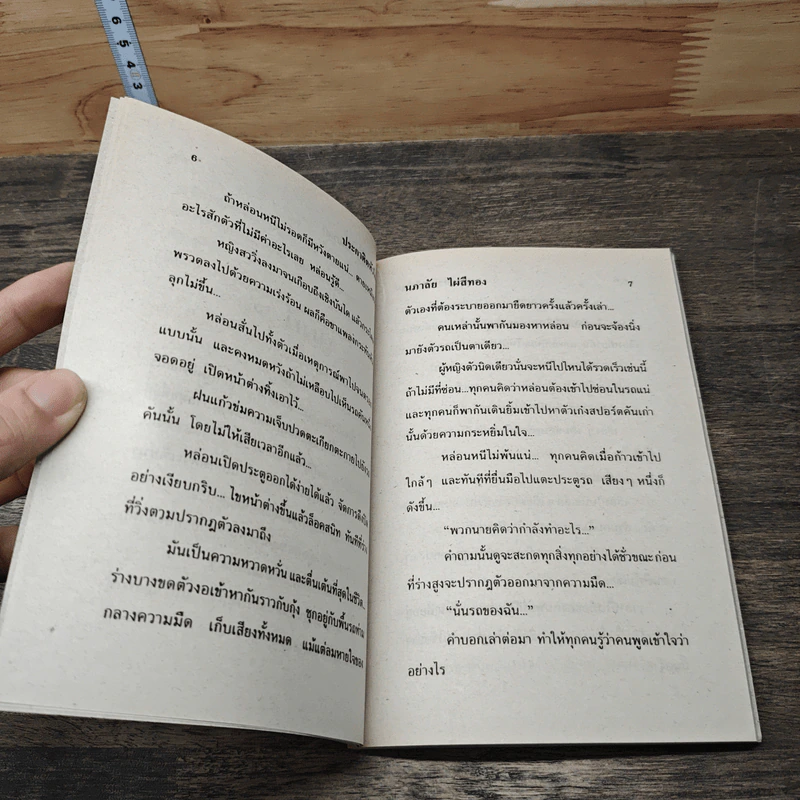 6 5 4 3
6
ถ้าหล่อนหนีไม่รอดก็มีหวังตายแน่...
อะไรสักตัวที่ไม่มีค่าอะไรเลย หล่อนรู้ดี...
หญิงสาววิ่งลงมาจนเกือบถึงเชิงบันได
พรวดลงไปด้วยความเร่งร้อน ผลก็คือขาแพลงกระทันหัน
ลุกไม่ขึ้น...
หล่อนสั่นไปทั้งตัวเมื่อเหตุการณ์พาไป
แบบนั้น และคงหมดหวังถ้าไม่เหลือบไปเห็นรถคันหนึ่ง
จอดอยู่ เปิดหน้าต่างทิ้งเอาไว้...
ฝนแก้วข่มความเจ็บปวดตะเกียกตะกายไปยัง
คันนั้น โดยไม่ให้เสียเวลาอีกแล้ว...
หล่อนเปิดประตูออกได้ง่ายได้แล้ว จัดการ
อย่างเงียบกริบ... ไขหน้าต่างขึ้นแล้วล็อคสนิท ทันที
ที่วิ่งตามปรากฎตัวลงมาถึง
มันเป็นความหวาดหวั่น และตื่นเต้นที่สุดในชีวิต...
ร่างบางขดตัวงอเข้าหากันราวกับกุ้ง ซุกอยู่กับพื้นรถ
กลางความมืด เก็บเสียงทั้งหมด แม้แต่ลมหายใจของ
นภาลัย ไผ่สีทอง
7
ตัวเองที่ต้องระบายออกมายืดยาวครั้งแล้วครั้งเล่า...
คนเหล่านั้นพากันมองหาหล่อน ก่อนจะจ้องนิ่ง
มายังตัวรถเป็นตาเดียว...
ผู้หญิงตัวนิดเดียวนั่นจะหนีไปไหนได้รวดเร็วเช่นนี้
ถ้าไม่มีที่ซ่อน...ทุกคนคิดว่าหล่อนต้องเข้าไปซ่อนในรถแน่
และทุกคนก็พากันเดินยิ้มเข้าไปหาตัวเก๋งสปอร์ตคันเก่า
นั้นด้วยความกระหยิ่มในใจ...
หล่อนหนีไม่พ้นแน่... ทุกคนคิดเมื่อก้าวเข้าไป
ใกล้ๆ และทันทีที่ยื่นมือไปแตะประตูรถ เสียงๆ หนึ่งก็
ดังขึ้น...
“พวกนายคิดว่ากำลังทำอะไร...”
คำถามนั้นดูจะสะกดทุกสิ่งทุกอย่างได้ชั่วขณะก่อน
ที่ร่างสูงจะปรากฎตัวออกมาจากความมืด...
“นั่นรถของฉัน...”
คำบอกเล่าต่อมา ทำให้ทุกคนรู้ว่าคนพูดเข้าใจว่า
อย่างไร